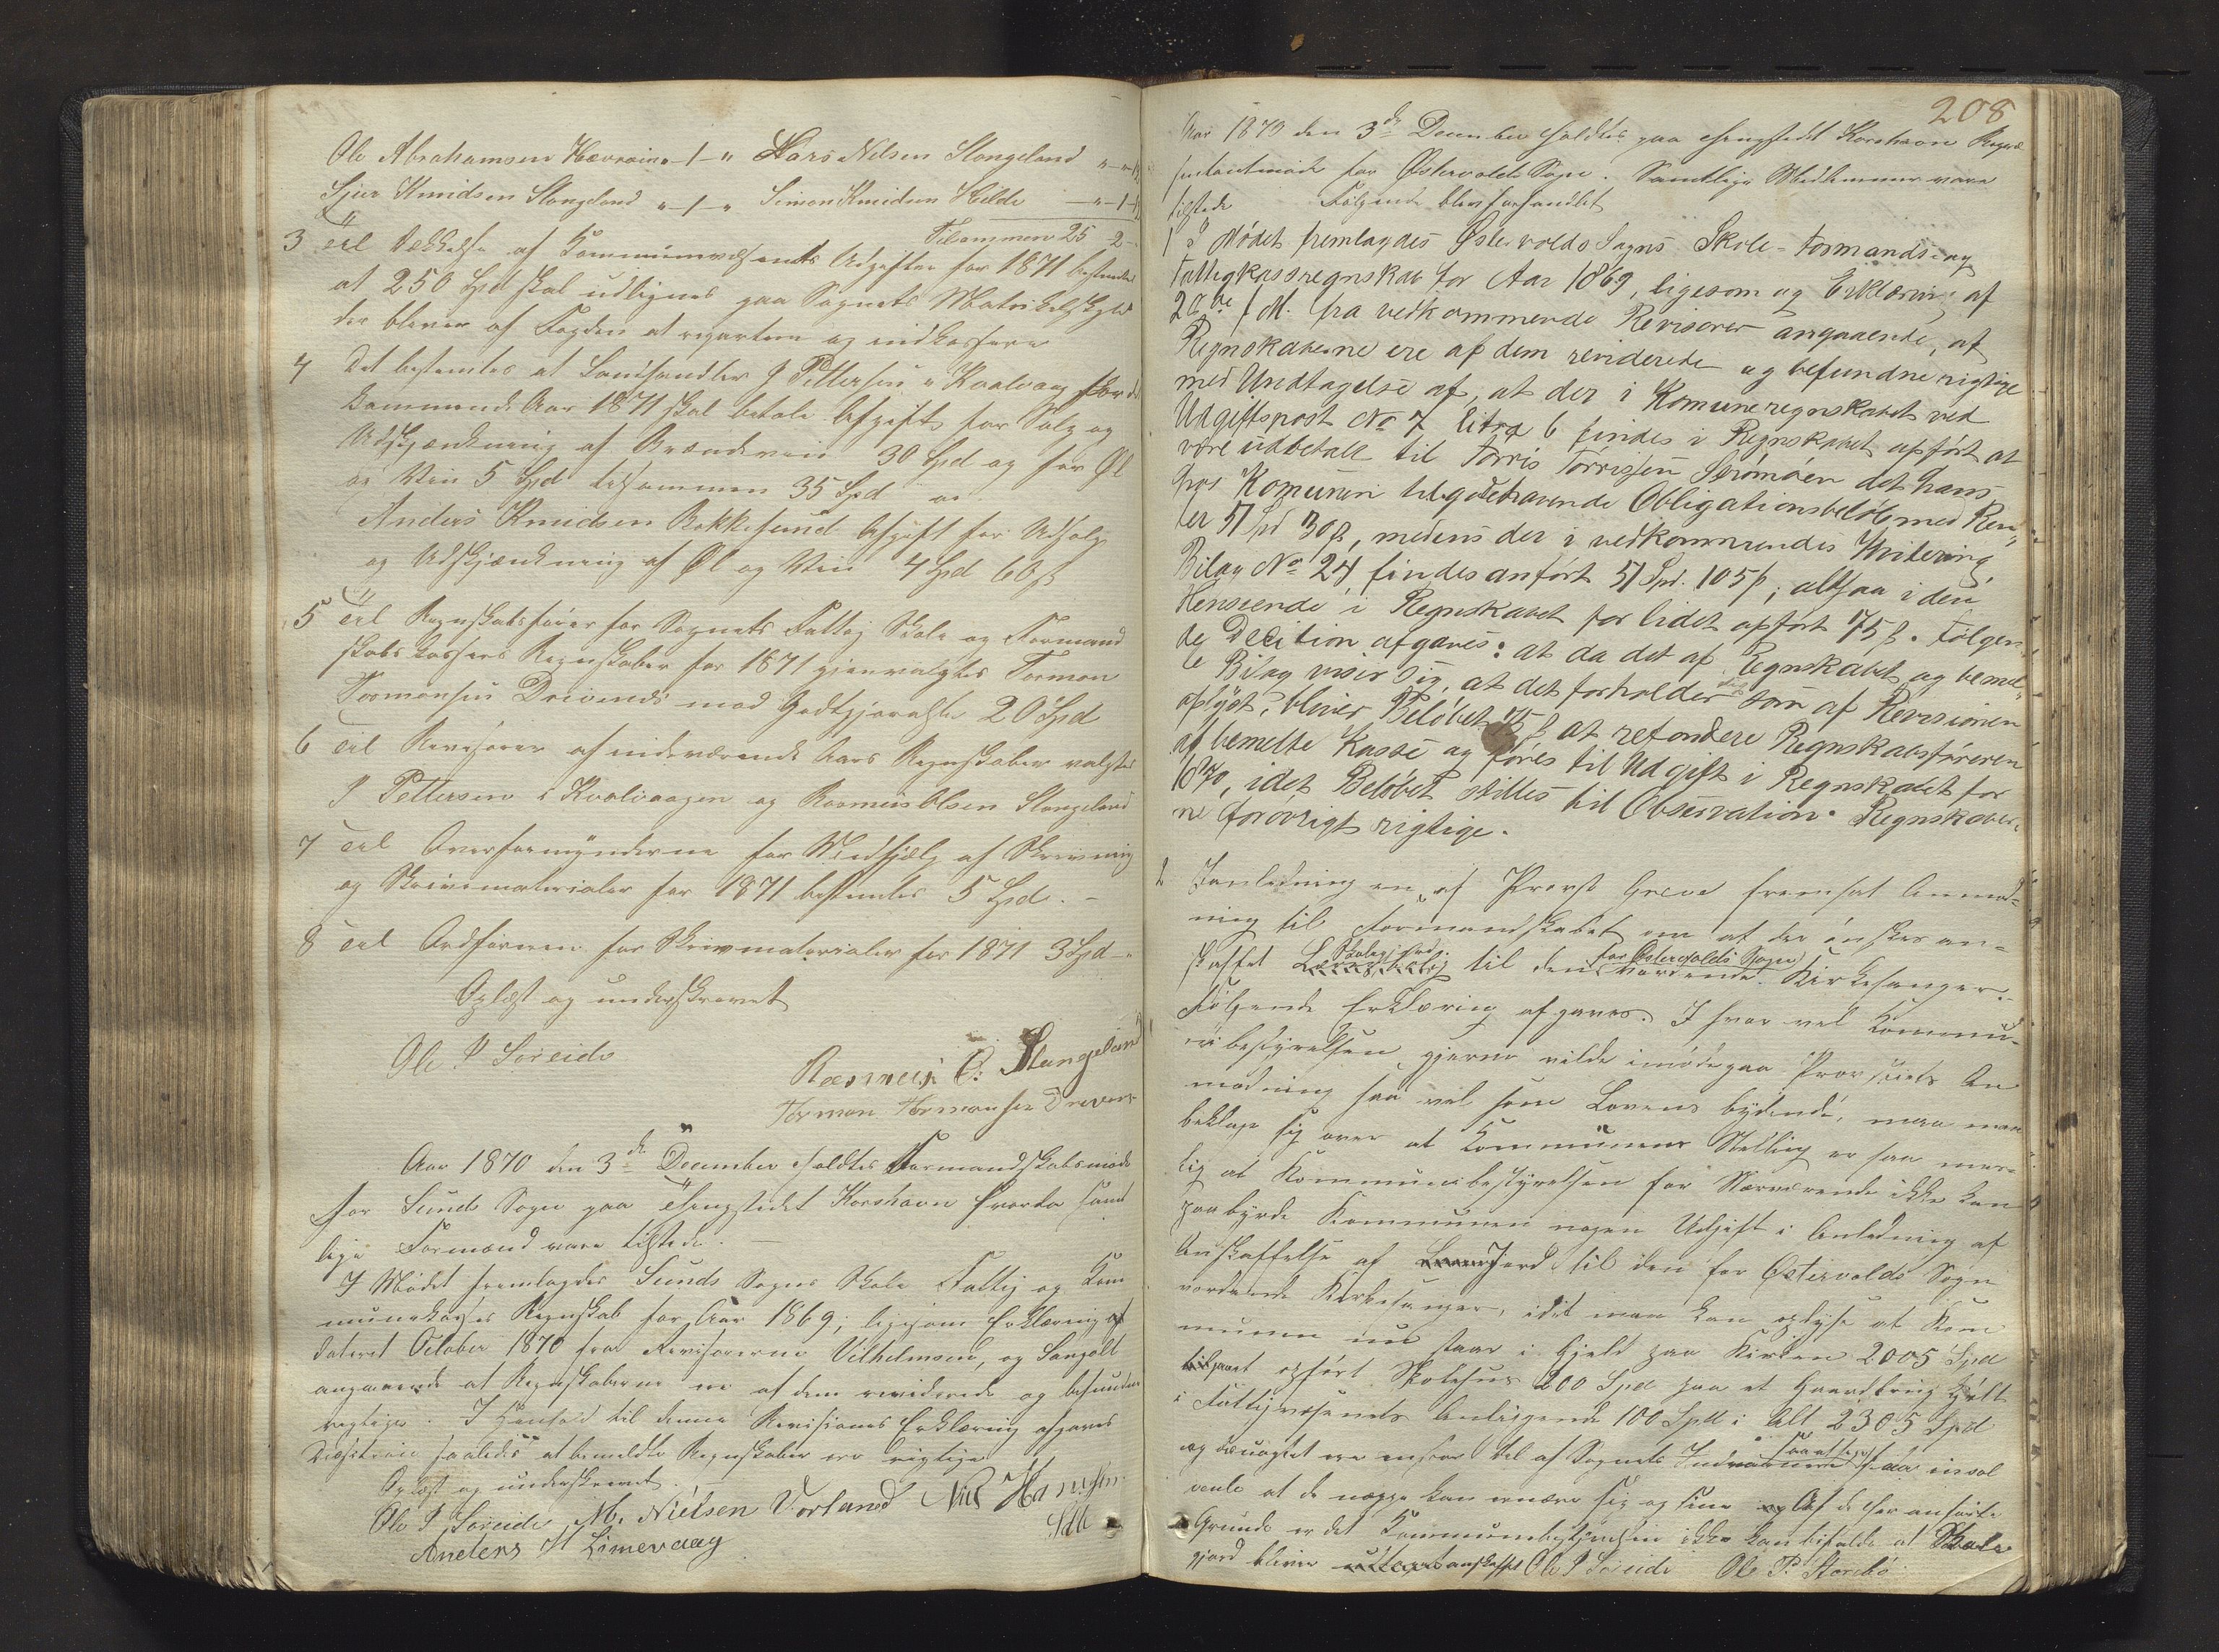 Ole Abrahamsen Hevrøin "-1-" Lars Nilsen Stangeland "-"-
Sjur Knudsen Stangeland "-1-" Simon Knudsen Hilde -"-1-
Tilsammen 25 - 2 -
3 Til Dækkelse af Kommunevæsenets Udgifter for 1871 bestemtes
at 250 Spd skal udlignes paa Sognets Matrikelskyld
der bliver af Fogden at repartere og indkassere
4 Det bestemtes at Landhandler J Pettersen i Kvalvaag for det
kommende Aar 1871 skal betale Afgift for Salg og
Udskjænkning af Brændeviin 30 Spd og for Øl
og Viin 5 Spd tilsammen 35 Spd
Anders Knudsen Bekkesund Afgift for Udsalg
og Udskjænkning af Øl og Viin 4 Spd 60 ß
5 Til Regnskabsfører for Sognets Fattig Skole og Formand
skabskassers Regnskaber for 1871 gjenvalgtes Tormon
Tormonsen Drivenes mod Godtgjørelse 20 Spd
6 Til Revisorer af indeværende Aars Regnskaber valgtes
J Pettersen i Kvalvaagen og Rasmus Olsen Stangeland
7 Til Overformynderne for Medhjælp af Skrivning
og Skrivematerialer for 1871 bestemtes 5 Spd. -
8 Til Ordføreren for Skrivmaterialer for 1871 3 Spd -
Oplæst og underskrevet
Ole P Søreide
Rasmus O: Stangeland
Tormon Tormonsen Drivenes
Aar 1870 den 3de December holdtes Formandskabsmøde
for Sunds Sogn paa Thingstedet Korshavn hvorda samt
lige Formænd vare tilstede. -
I Mødet fremlagdes Sunds Sogns Skole Fattig og Kom
munekasses Regnskab for Aar 1869; ligesom Erklæring af
dateret October 1870 fra Revisorerne Vilhelmsen, og
angaaende at Regnskaberne ere af dem reviderede og befundne
rigtige. I Henhold til denne Revisions Erklæring afgaves
Decision saaledes at bemeldte Regnskaber ere rigtige
Oplæst og underskrevet.
Ole P Søreide M. Nielsen Vorland Nils Hansen
Anders H Limevaag
208
Aar 1870 den 3de December holdtes paa Thingstedt Korshavn Repræ
sentantmøde for Østervolds Sogn. Samtlige Medlemmer vare
tilstede Følgende blev forhandlet
1 I Mødet fremlagdes Østervolds Sogns Skole- Formands- og
Fattigkassregnskab for Aar 1869, ligesom og Erklæring af
28de f. M. fra vedkommende Revisorer angaaende, at
Regnskaberne ere af dem reviderede og befundne rigtige
med Undtagelse af, at der i Komuneregnskabet ved
Udgiftspost No 7 litra b findes i Regnskabet opført at
være udbetalt til Torris Torrissen Strømøen det hans
hos Komunen tilgodehavende Obligationsbeløb med Ren„
ter 51 Spd 30 ß, medens der i vedkommendes Kvitering
Bilag No 24 findes anført 51 Spd. 105 ß; altsaa i den
Henseende i Regnskabet for lidet opført 75 ß. Følgen„
de Decition afgaves: at da det af Regnskabet og bemel„
te Bilag viser sig, at det forholder sig som af Revisionen
oplyst, bliver Beløbet 75 ß at refondere Regnskabsføreren
af bemelte Kasse og føres til Udgift i Regnskabet for
1870, idet Beløbet stilles til Observation. Regnskaber„
ne forøvrigt rigtige.
2 I Anledning en af Provst Greve fremsat Anmod„
ning til Formandskabet om at der ønskes an-
skaffet Skolejord til den for Østervolds Sogn vordende Kirkesanger.
Følgende Erklæring afgaves. I hvor vel Kommu-
nebestyrelsen gjerne vilde imødegaa Provstiets An
modning saa vel som Lovens bydende, maa man
beklage sig over at Kommunens Stilling er saa mis-
lig at Kommunebestyrelsen for Nærværende ikke kan
paabyrde Kommunen nogen Udgift i Anledning af
Anskaffelse af Jord til den for Østervolds Sogn
vordende Kirkesanger, idet man kan oplyse at Kom
munen nu staar i Gjeld paa Kirken 2005 Spd
paa et opført Skolehus 200 Spd paa et
i Fattigvæsenets Anliggende 100 Spd i Alt 2305 Spd
og uagtet en en stor Del af Sognets saa insol
vente at de neppe kan ernære sig og sine Af de her anførte
Grunde er det Kommunebestyrelsen ikke kan bifalde at Skole
gjord bliver anskaffet Ole P Søreide Ole P. Storebø